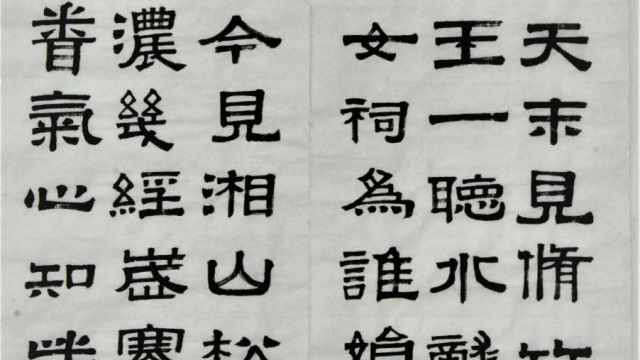 天末見脩竹
王一聽水
女祠為誰娟
今見湘山松
濃幾經歲寒
氣心知